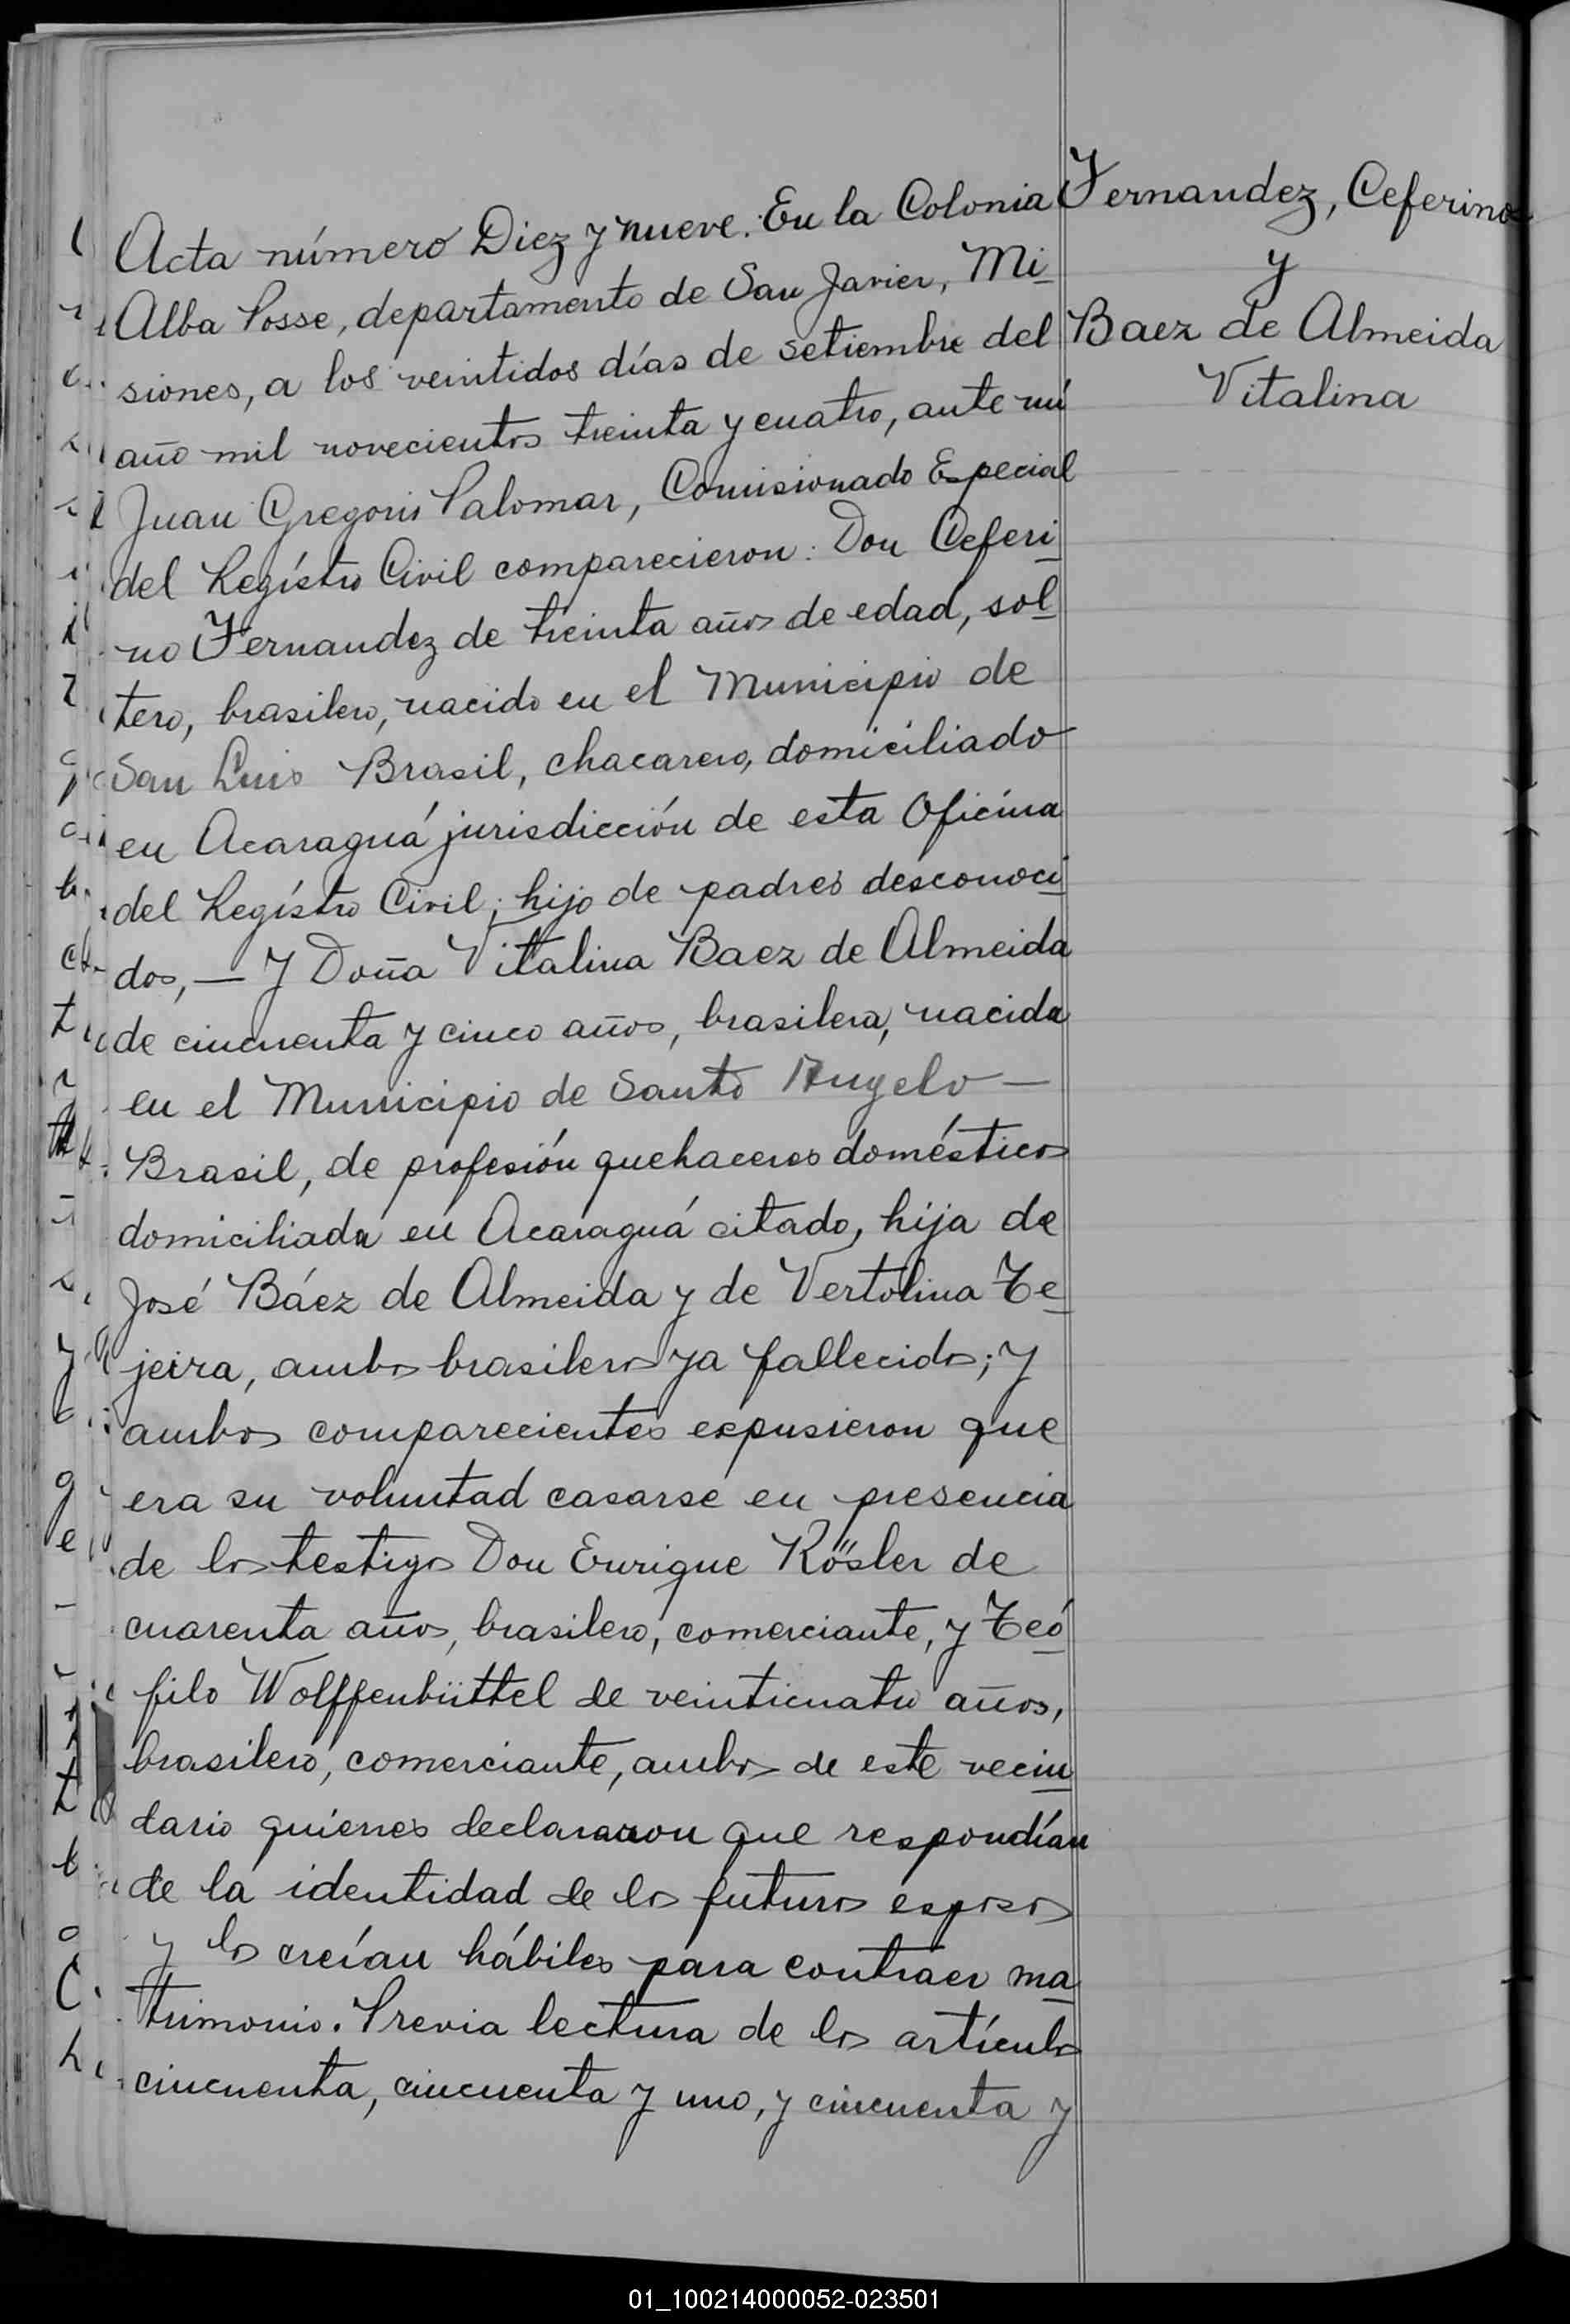 Acta número Diez y nueve. En la Colonia
Alba Posse, departamento de San Javier, Mi
siones, a los veintidos días de setiembre del
año mil novecientos treinta y cuatro, ante mí
Juan Gregorio Palomar, Comisionado Especial
del Regístro Civil comparecieron: Don Ceferi
no Fernandez de treinta años de edad, sol
tero, brasilero, nacido en el Municipio de
San Luis Brasil, chacarero, domiciliado
en Acaraguá jurisdicción de esta Oficina
del Regístro Civil; hijo de padres desconoci
dos, — Y Doña Vitalina Baez de Almeida
de cincuenta y cinco años, brasilera, nacida
en el Municipio de Santo Angelo —
Brasil, de profesión quehaceres domésticos
domiciliada en Acaraguá citado, hija de
José Báez de Almeida y de Vertolina Te
jeira, ambos brasileros ya fallecidos; y
ambos comparecientes expusieron que
era su voluntad casarse en presencia
de los testigos Don Enrique Rösler de
cuarenta años, brasilero, comerciante, y Teó
filo Wolffenbüttel de veinticuatro años,
brasilero, comerciante, ambos de este vecin
dario quienes declararon que respondían
de la identidad de los futuros esposos
y los creían hábiles para contraer ma
trimonio. Previa lectura de los artículos
cincuenta, cincuenta y uno, y cincuenta y
Fernandez, Ceferino
y
Baez de Almeida
Vitalina
01_100214000052-023501